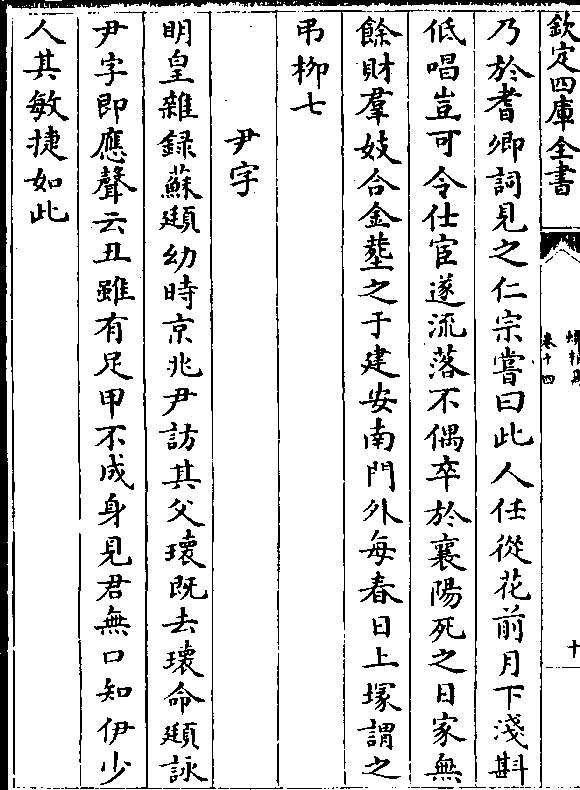 欽定四庫全書
卷十四
十
乃於耆卿詞見之仁宗嘗曰此人任從花前月下淺斟
低唱豈可令仕宦遂流落不偶卒於襄陽死之日家無
餘財羣妓合金塟之于建安南門外每春日上塚謂之
弔栁七
尹字
明皇雜録蘇頲幼時京兆尹訪其父瓌既去瓌命頲詠
尹字即應聲云丑雖有足甲不成身見君無口知伊少
人其敏捷如此